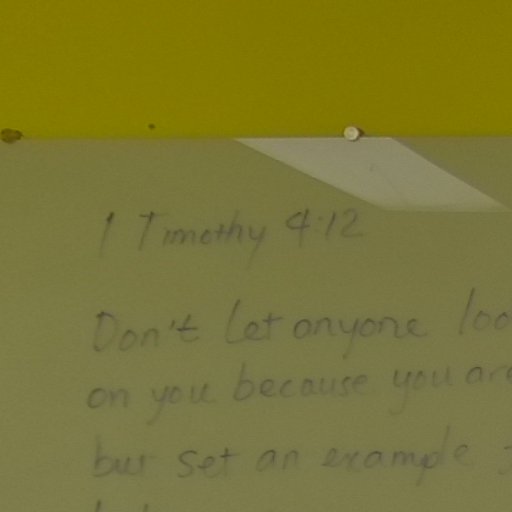 1 Timothy 4:12
Don't let anyone
on you because you are
but set an example